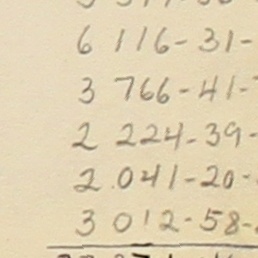 6 116-31-
3 766-41-
2 224-39-
2.041-20-
3 012-58-